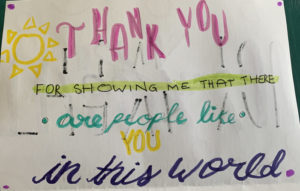 THANK YOU
FOR SHOWING ME THAT THERE
are people like
YOU
in this world